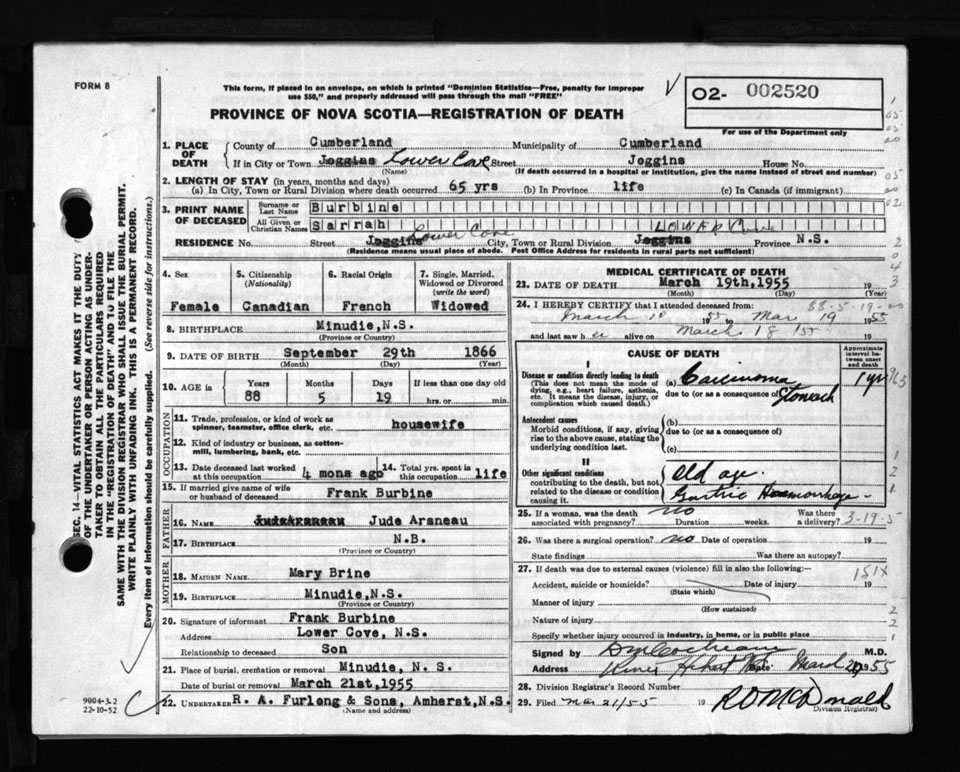 FORM 8
This form, if placed in an envelope, on which is printed "Dominion Statistics—Free, penalty for improper
use $50," and properly addressed will pass through the mail "FREE"
O2- 002520
For use of the Department only
PROVINCE OF NOVA SCOTIA—REGISTRATION OF DEATH
1. PLACE OF DEATH
County of Cumberland Municipality of Cumberland
If in City or Town Joggins Lower Cove Street Joggins House No.
(Name) (If death occurred in a hospital or institution, give the name instead of street and number)
2. LENGTH OF STAY (in years, months and days)
(a) In City, Town or Rural Division where death occurred 65 yrs (b) In Province life (c) In Canada (if immigrant)
3. PRINT NAME OF DECEASED
Surname or Last Name Burbine
All Given or Christian Names Sarrah
RESIDENCE No. Street Joggins Lower Cove City, Town or Rural Division Joggins Lower Cove Province N.S.
(Residence means usual place of abode. Post Office Address for residents in rural parts not sufficient)
4. Sex Female
5. Citizenship (Nationality) Canadian
6. Racial Origin French
7. Single, Married, Widowed or Divorced (write the word) Widowed
8. BIRTHPLACE Minudie, N.S.
(Province or Country)
9. DATE OF BIRTH September 29th 1866
(Month) (Day) (Year)
10. AGE in Years 88 Months 5 Days 19 If less than one day old hrs. or min.
OCCUPATION
11. Trade, profession, or kind of work as
spinner, teamster, office clerk, etc. housewife
12. Kind of industry or business, as cotton-
mill, lumbering, bank, etc.
13. Date deceased last worked at this occupation 4 mons ago 14. Total yrs. spent in this occupation life
15. If married give name of wife
or husband of deceased Frank Burbine
FATHER
16. NAME Jude Arsneau
17. BIRTHPLACE N.B.
(Province or Country)
MOTHER
18. MAIDEN NAME Mary Brine
19. BIRTHPLACE Minudie, N.S.
(Province or Country)
20. Signature of informant Frank Burbine
Address Lower Cove, N.S.
Relationship to deceased Son
21. Place of burial, cremation or removal Minudie, N. S.
Date of burial or removal March 21st, 1955
22. UNDERTAKER R. A. Furlong & Sons, Amherst, N.S.
(Name and address)
MEDICAL CERTIFICATE OF DEATH
23. DATE OF DEATH March 19th, 1955 19
(Month) (Day) (Year)
24. I HEREBY CERTIFY that I attended deceased from: 88-5-19-00
March 10 1955 to Mar 19 1955
and last saw her alive on March 18 1955 19
CAUSE OF DEATH
Approximate interval between onset and death
I
Disease or condition directly leading to death
(This does not mean the mode of
dying, e.g., heart failure, asthenia,
etc. It means the disease, injury, or
complication which caused death.)
(a) Carcinoma 1 yr
due to (or as a consequence of) Stomach
Antecedent causes
Morbid conditions, if any, giving
rise to the above cause, stating the
underlying condition last
(b)
due to (or as a consequence of)
(c)
II
Other significant conditions
contributing to the death, but not
related to the disease or condition
causing it.
Old age.
Gastric Haemorrhage
25. If a woman, was the death
associated with pregnancy? no Duration weeks. Was there a delivery? 3-19-5
26. Was there a surgical operation? no Date of operation 19
State findings Was there an autopsy?
27. If death was due to external causes (violence) fill in also the following: 151X
Accident, suicide or homicide? Date of injury 19
(State which)
Manner of injury
(How sustained)
Nature of injury
Specify whether injury occurred in industry, in home, or in public place
Signed by D M Cochrane M.D.
Address River Hebert Date March 20 1955
28. Division Registrar's Record Number
29. Filed Mar 21/55 19
Division Registrar
SEC. 14—VITAL STATISTICS ACT MAKES IT THE DUTY
OF THE UNDERTAKER OR PERSON ACTING AS UNDER-
TAKER TO OBTAIN ALL THE PARTICULARS REQUIRED
IN THE "REGISTRATION OF DEATH" AND TO FILE THE
SAME WITH THE DIVISION REGISTRAR WHO SHALL ISSUE THE BURIAL PERMIT.
WRITE PLAINLY WITH UNFADING INK. THIS IS A PERMANENT RECORD.
Every item of information should be carefully supplied. (See reverse side for instructions.)
9004-3.2
22-10-52